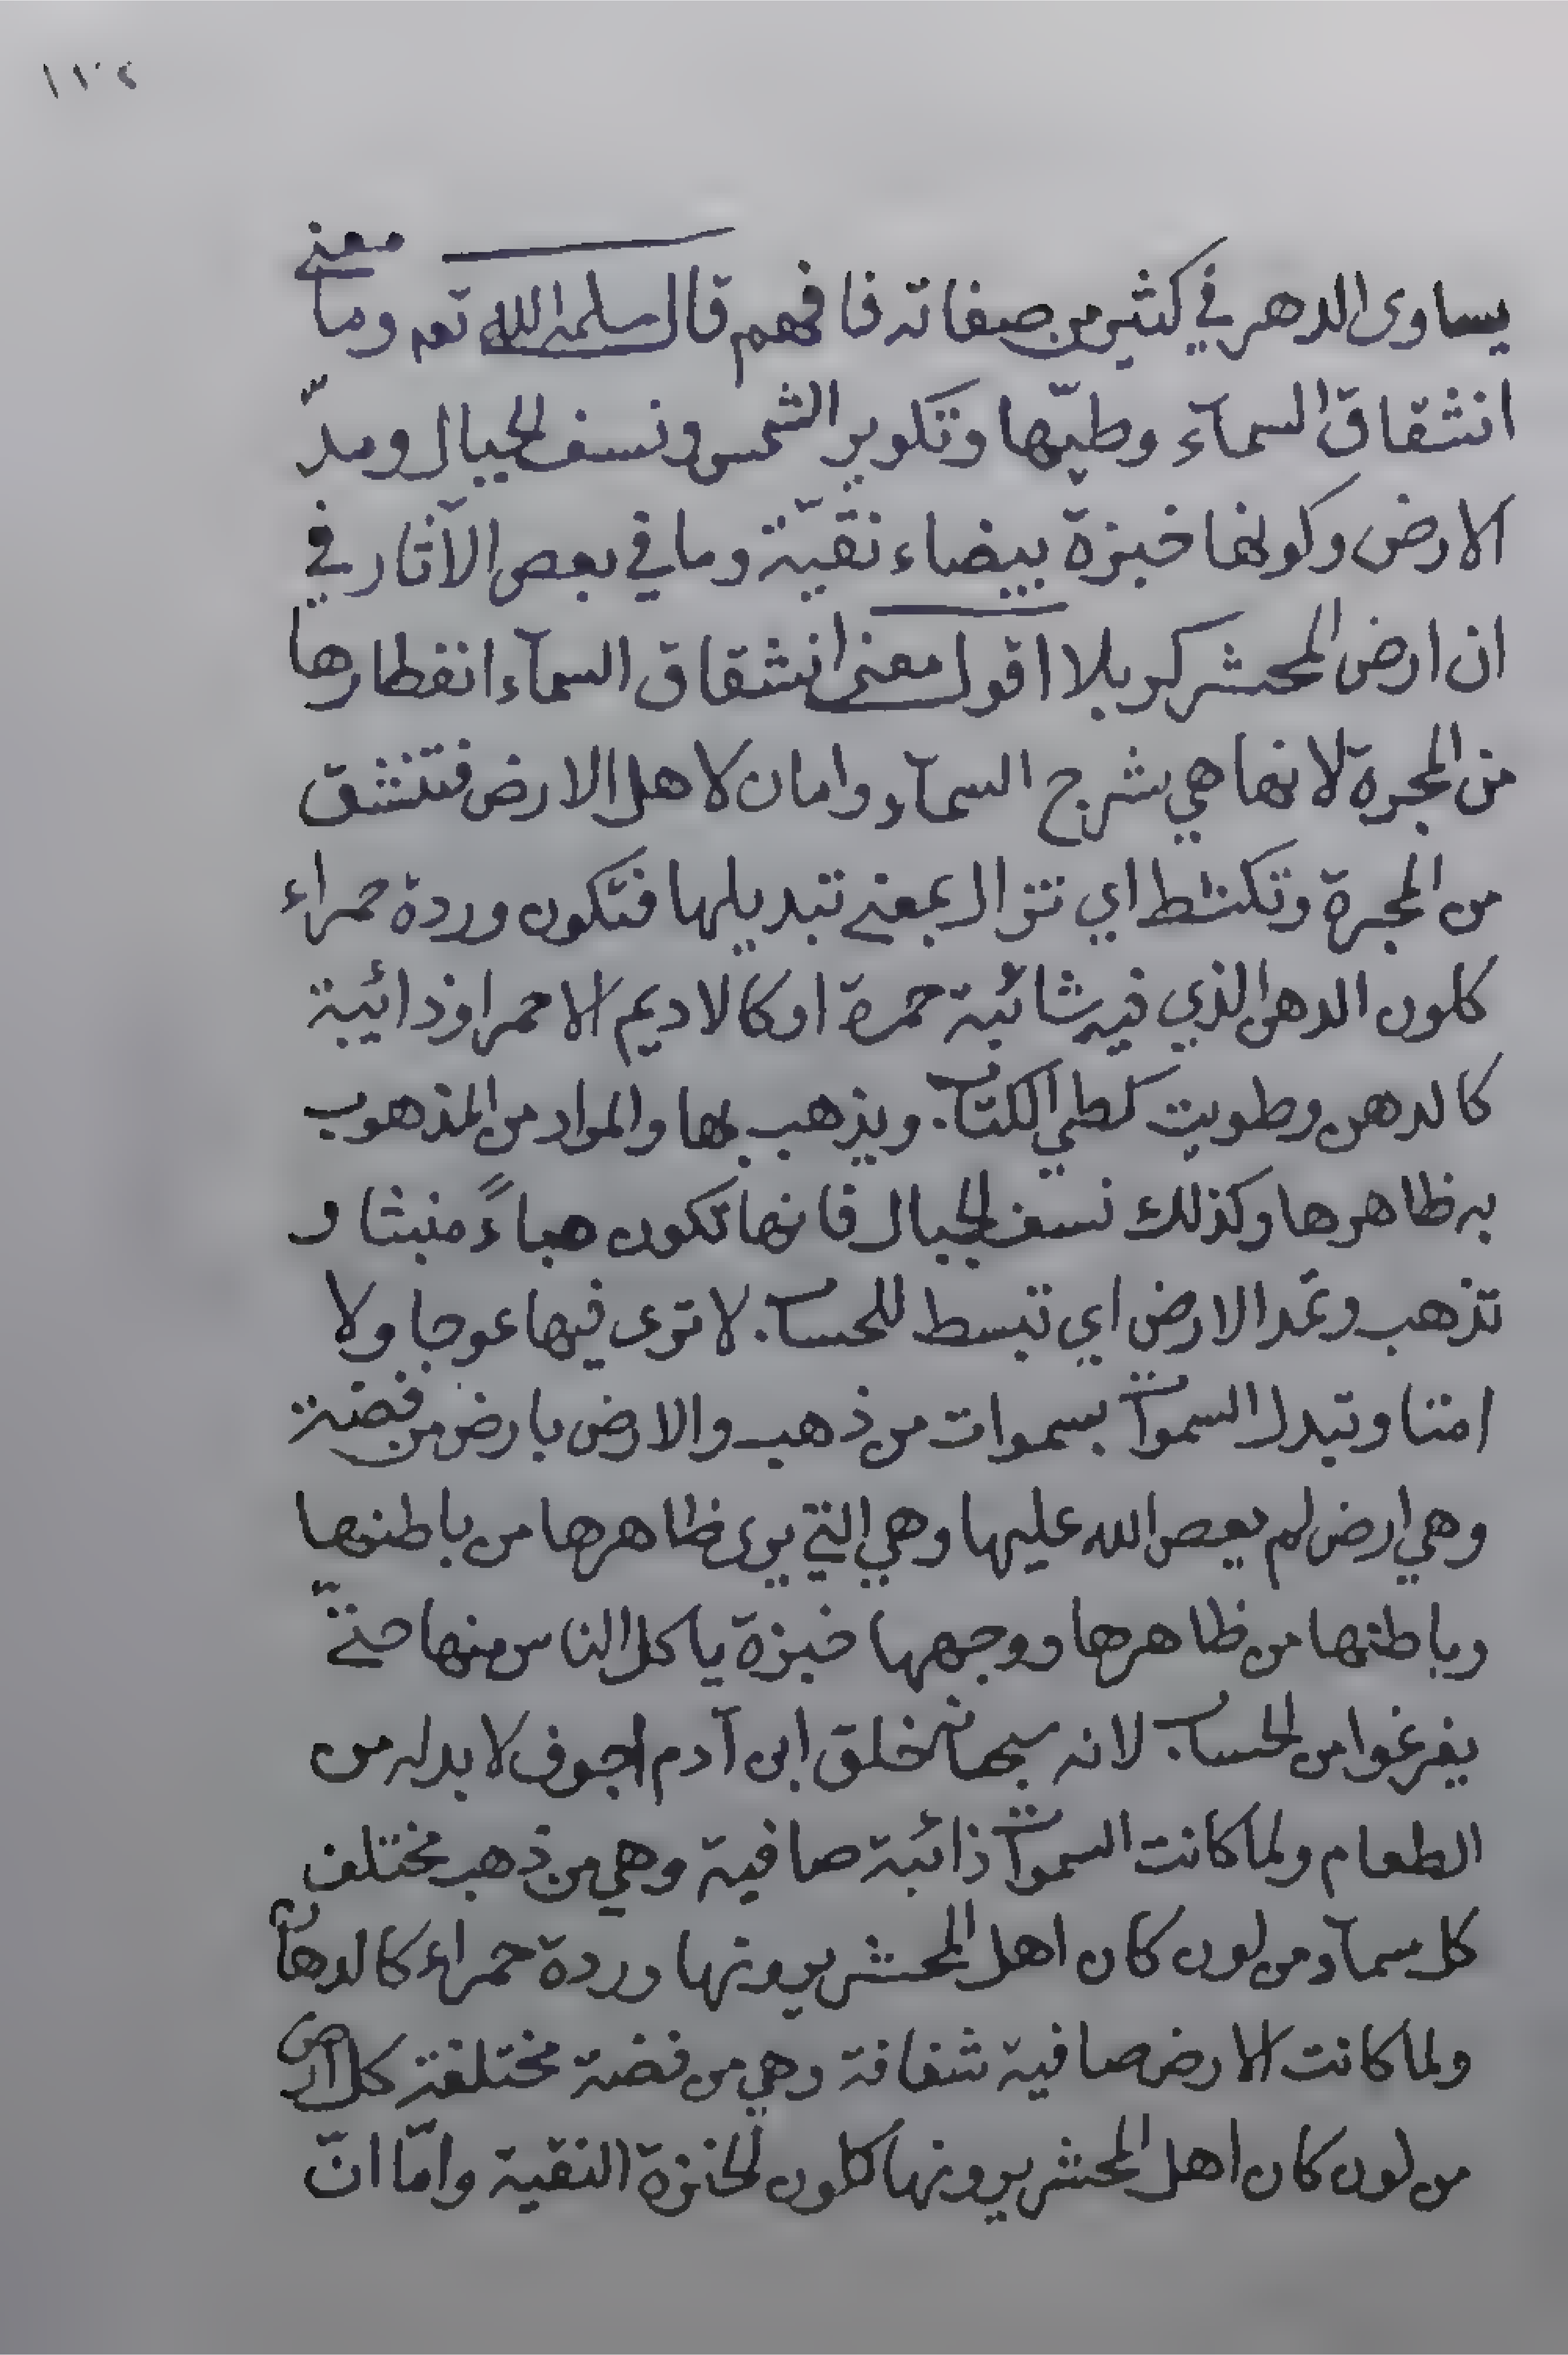 ١١٢
يساوى الدهر في كثير من صفاته فافهم قال سلمه الله تعه وما معنى
انشقاق السمآء وطيّها وتكوير الشمس ونسف الجبال ومدّ
الارض وكونها خبزة بيضاء نقيّة وما في بعض الآثار في
ان ارض المحشر كربلا اقول معنى انشقاق السمآء انفطارها
من المجرة لانها هي شرج السمآء وامان لاهل الارض فتنشق
من المجرة وتكشط اي تزال بمعنى تبديلها فتكون وردة حمراء
كلون الدهن الذي فيه شائبة حمرة او كالاديم الاحمر او ذائبة
كالدهن وطويت كطي الكتاب ويذهب بها والمراد من المذهوب
به ظاهرها وكذلك نسف الجبال فانها تكون هباءً منبثا و
تذهب وتمد الارض اي تبسط للحساب لا ترى فيها عوجا ولا
امتا وتبدل السموات بسموات من ذهب والارض بارض من فضة
وهي ارض لم يعص الله عليها وهي التي يرى ظاهرها من باطنها
وباطنها من ظاهرها ووجهها خبزة ياكل الناس منها حتىّ
يفرغوا من الحساب لانه سبحانه خلق ابن آدم اجوف لا بد له من
الطعام ولما كانت السموات ذائبة صافية وهي من ذهب مختلف
كل سمآء من لون كان اهل المحشر يرونها وردة حمراء كالدهان
ولما كانت الارض صافية شفافة وهي من فضة مختلفة كل ارض
من لون كان اهل المحشر يرونها كلون الخبزة النقية وامّا انّ